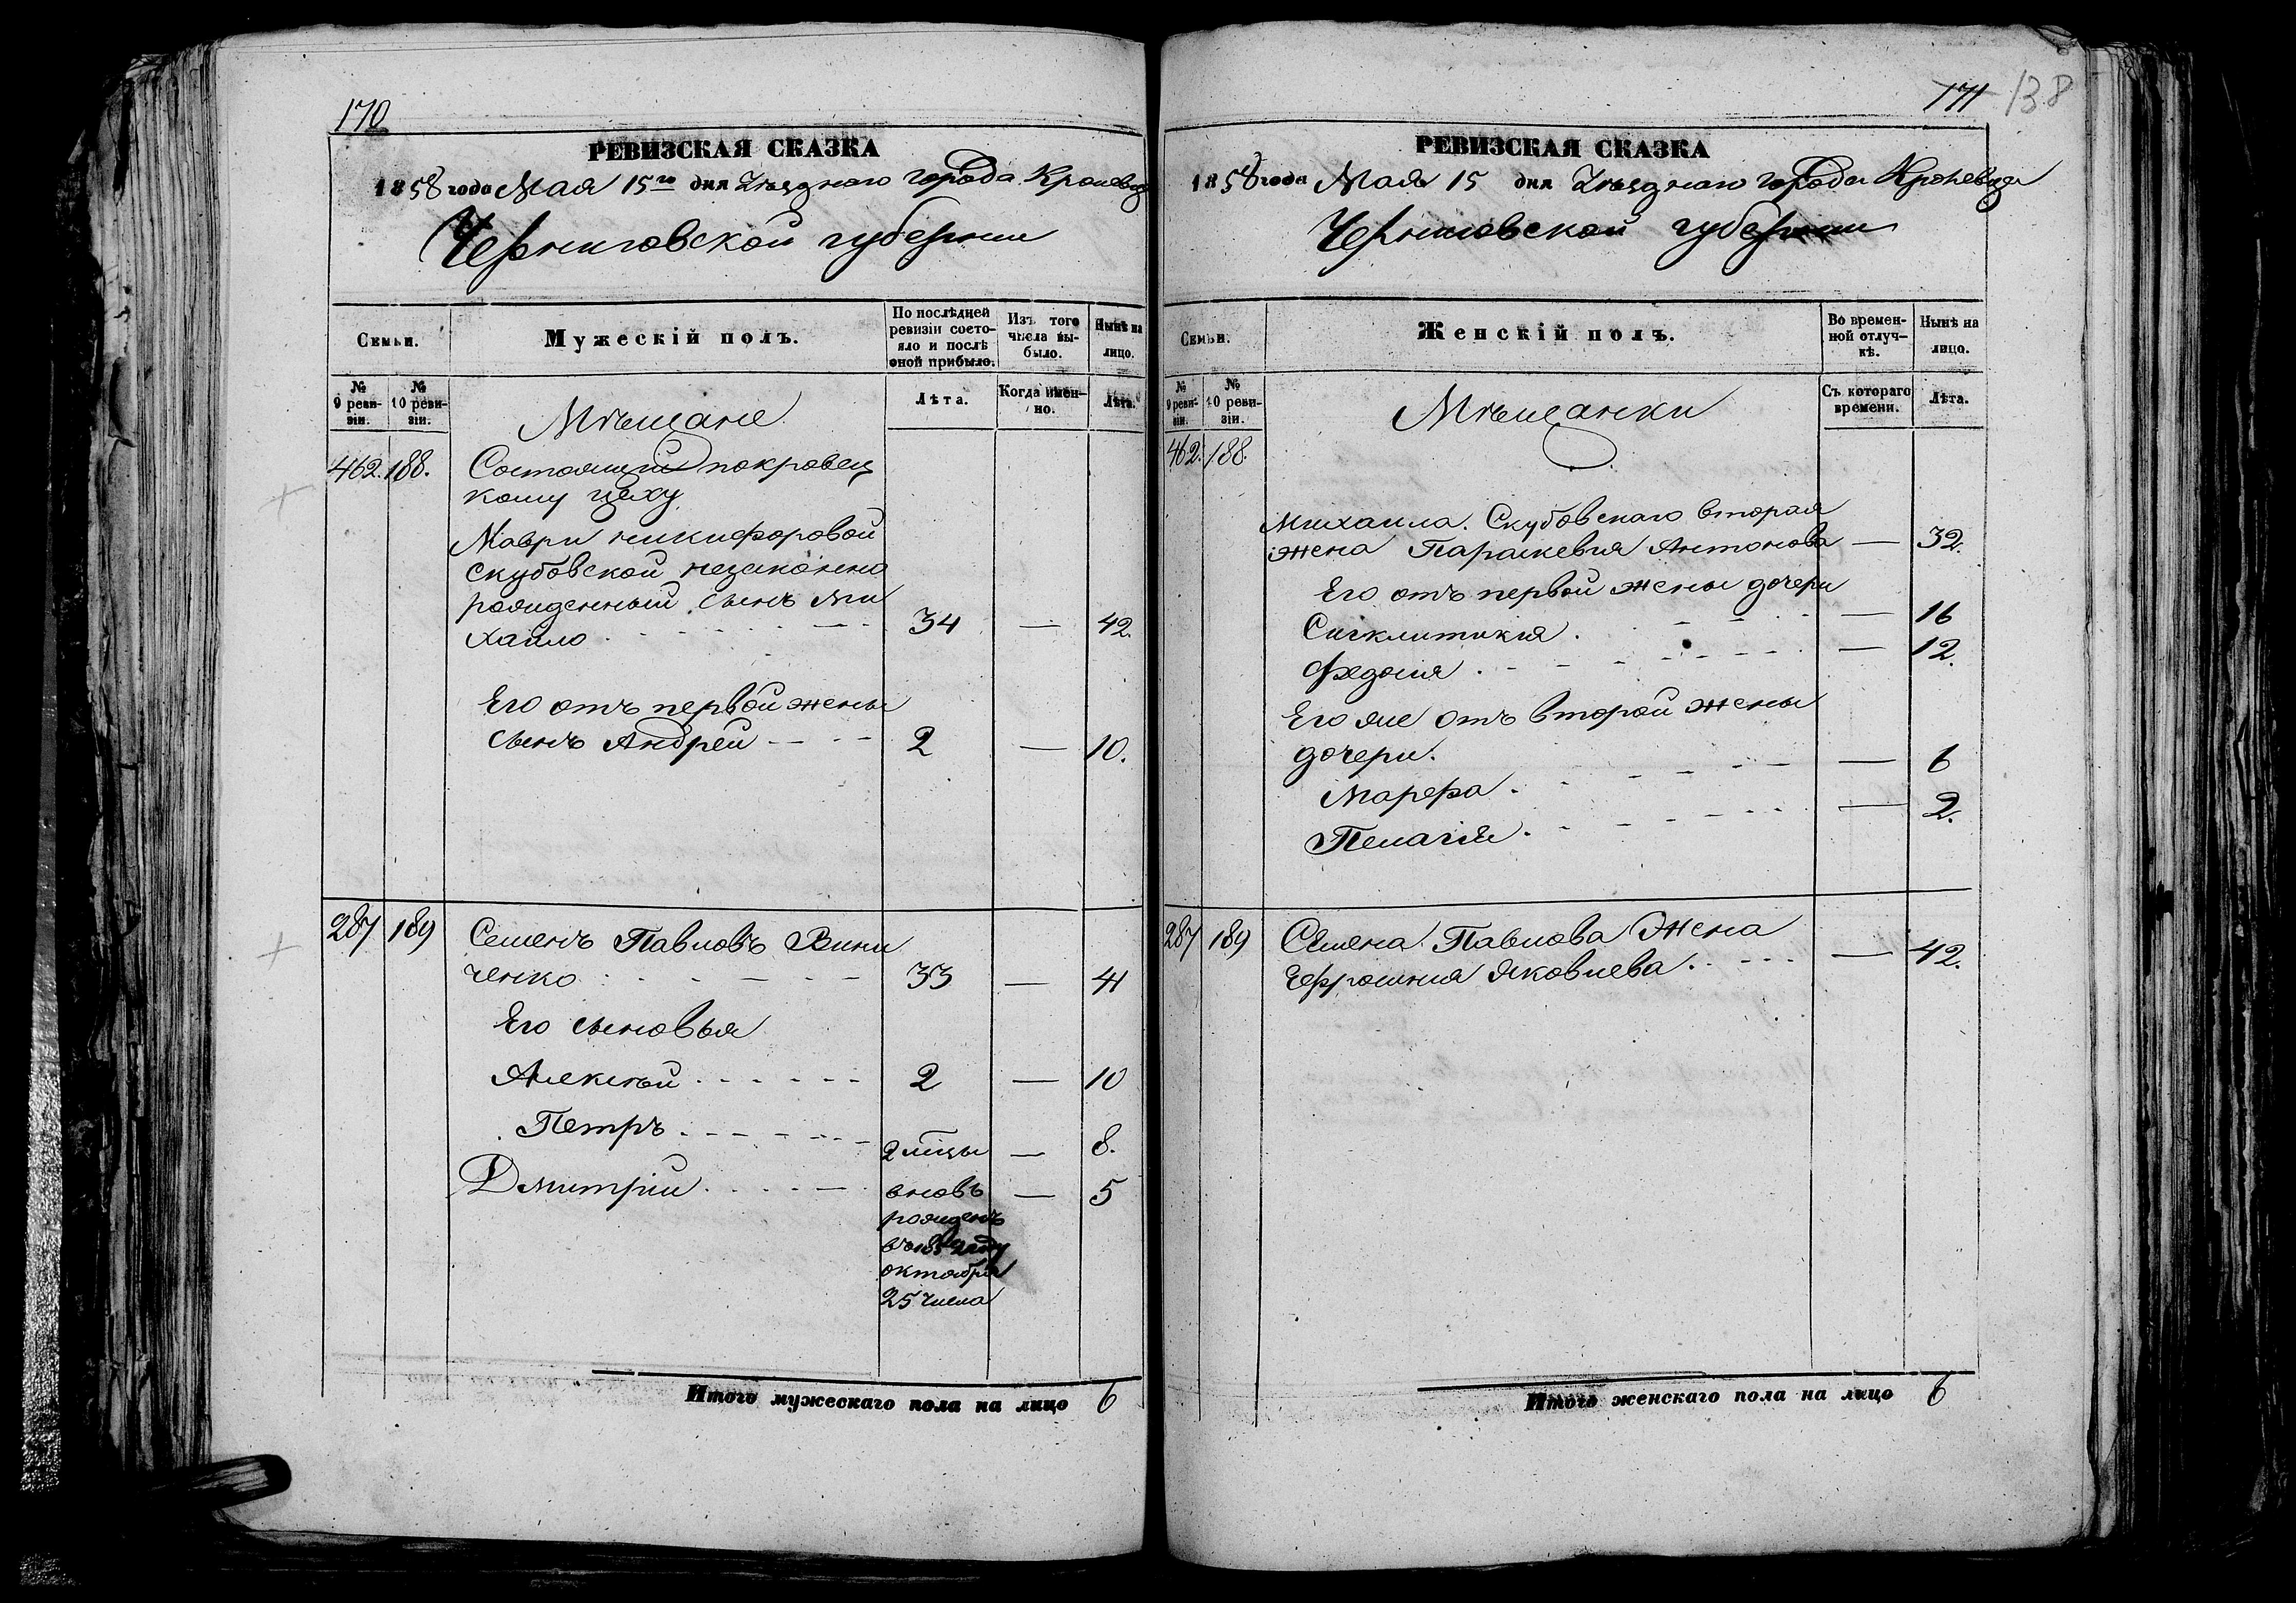 170
РЕВИЗСКАЯ СКАЗКА
1858 года Мая 15го дня Уѣзднаго города Кролевца
Черниговской губернии
Семьи.
Мужескій полъ.
По послѣдней ревизіи состояло и послѣ оной прибыло.
Изъ того числа выбыло.
Нынѣ на лицо.
№ 9 ревизіи.
№ 10 ревизіи.
Лѣта.
Когда именно.
Лѣта.
Мѣщане
462. 188. Состоящий покровец
кому цеху
Маври никифоровой
скубовской незаконно
рожденный сынъ Ми
хайло 34 — 42.
Его отъ первой жены
сынъ Андрей 2 — 10.
287 189 Семенъ Павловъ
ченко 33 — 41
Его сыновья
Алексѣй 2 — 10
Петръ 2 м̃цы — 8.
Дмитрій вновь — 5
рожденъ
октября
25 числа
Итого мужескаго пола на лицо 6
171 138
РЕВИЗСКАЯ СКАЗКА
1858 года Мая 15 дня Уѣзднаго города Кролевца
Черниговской губернии
Семьи.
Женскій полъ.
Во временной отлучкѣ.
Нынѣ на лицо.
№ 9 ревизіи.
№ 10 ревизіи.
Съ котораго времени.
Лѣта.
Мѣщанки
462. 188.
Михаила Скубовскаго вторая
жена Параскевия Антонова — 32.
Его отъ первой жены дочери
Синклитикия — 16
Федосия — 12.
Его же отъ второй жены
дочери.
Марфа — 6
Пелагія — 2.
287 189 Семена Павлова Жена
Ефросиния Яковлева — 42.
Итого женскаго пола на лицо 6